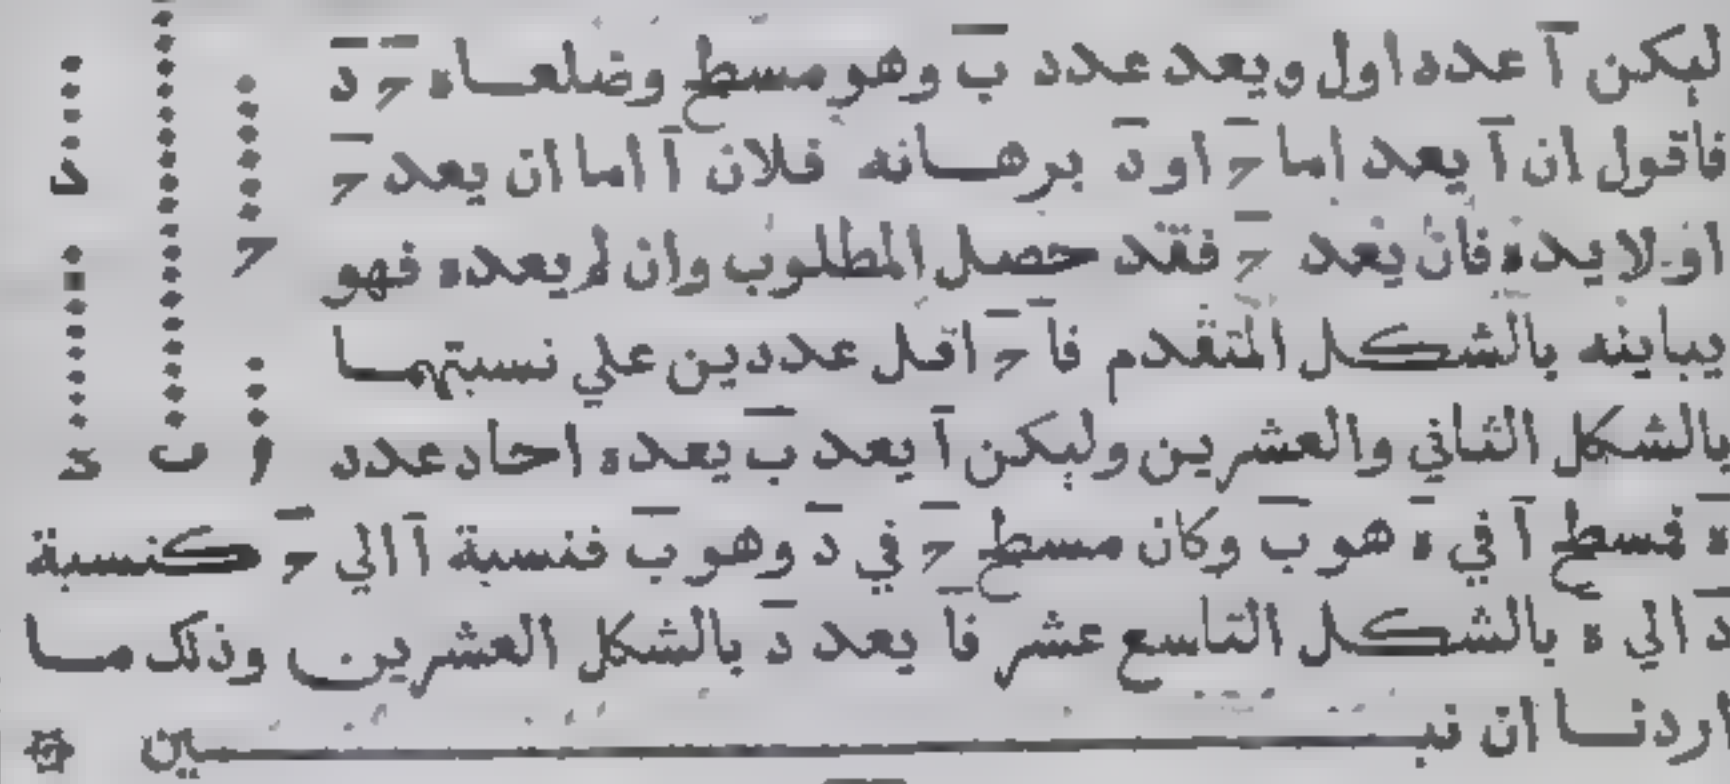 ليكن آ عدد اول ويعد عدد ب وهو مسطح وضلعاه ح د
فاقول ان آ يعد اما ح او د برهانه فلان آ اما ان يعد ح
او لا يعده فان يعد ح فقد حصل المطلوب وان لم يعده فهو
يباينه بالشكل المتقدم فا ح اقل عددين علي نسبتهما
بالشكل الثاني والعشرين وليكن آ يعد ب يعده احاد عدد
ه فسطح آ في ه هو ب وكان مسطح ح في د وهو ب فنسبة آ الي ح كنسبة
د الي ه بالشكل التاسع عشر فا يعد د بالشكل العشرين وذلك مـا
اردنـا ان نبـــين
د
ح
ب
و